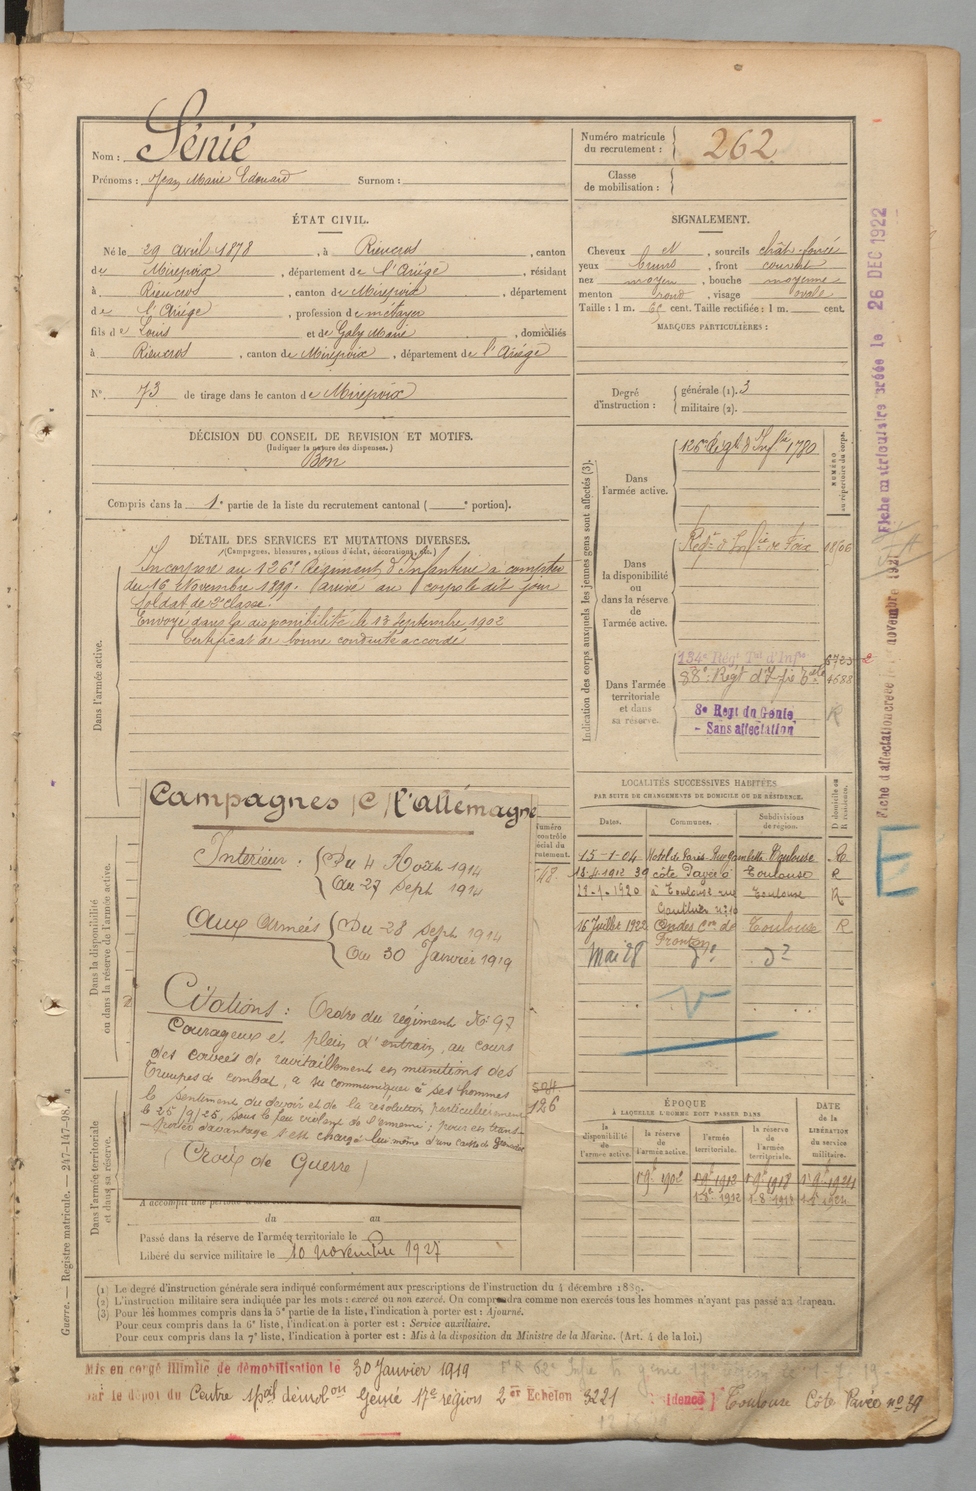 Nom : Sénié
Prénoms : Jean Marie Edouard Surnom :
Numéro matricule du recrutement : 262
Classe de mobilisation :
ÉTAT CIVIL.
Né le 29 avril 1878, à Rieucros, canton
de Mirepoix, département de l'Ariège, résidant
à Rieucros, canton de Mirepoix, département
de l'Ariège, profession de métayer
fils de Louis et de Galy Marie, domiciliés
à Rieucros, canton de Mirepoix, département de l'Ariège
N° 73 de tirage dans le canton de Mirepoix
SIGNALEMENT.
Cheveux N, sourcils chât. foncé
yeux bruns, front couvert
nez moyen, bouche moyenne
menton rond, visage ovale
Taille : 1 m. cent. Taille rectifiée : 1 m. cent.
MARQUES PARTICULIÈRES :
Degré d'instruction : générale (1). 3
militaire (2).
DÉCISION DU CONSEIL DE REVISION ET MOTIFS.
(Indiquer la nature des dispenses.)
Bon
Compris dans la 1e partie de la liste du recrutement cantonal ( e portion).
DÉTAIL DES SERVICES ET MUTATIONS DIVERSES.
(Campagnes, blessures, actions d'éclat, décorations, etc.)
Dans l'armée active.
Incorporé au 126e Régiment d'Infanterie à compter
du 16 Novembre 1899. Arrivé au corps le dit jour
Soldat de 2e classe.
Envoyé dans la disponibilité le 13 septembre 1902
Certificat de bonne conduite accordé
Indication des corps auxquels les jeunes gens sont affectés (3).
NUMÉRO au répertoire du corps.
Dans l'armée active.
126e Régt d'Infie 1780
Dans la disponibilité ou dans la réserve de l'armée active.
Régt d'Infie de Foix 1806
Dans l'armée territoriale et dans sa réserve.
134e Régt Tal d'Infie 6723
88e Régt d'Infie 4588
8e Regt du Genie R
- Sans affectation
LOCALITÉS SUCCESSIVES HABITÉES
PAR SUITE DE CHANGEMENTS DE DOMICILE OU DE RÉSIDENCE.
D domicile ou R résidence.
Dates. Communes. Subdivisions de région.
15-1-04 Hotel de Paris Rue Gambetta Toulouse R
13.4.1912 39 côte Pavée à Toulouse R
à Toulouse rue Toulouse R
Gauthier n° 10
16 Juillet 1922 Ondes Con de Fronton Toulouse R
Mai 28 do do
Dans la disponibilité ou dans la réserve de l'armée active.
Dans l'armée territoriale et dans sa réserve.
Campagnes (C) l'allémagne
Intérieur. Du 4 Août 1914
au 27 sept 1914
Aux armées Du 28 sept 1914
au 30 Janvier 1919
Citations : Ordre du régiment N° 97
Courageux et plein d'entrain, au cours
des corvées de ravitaillement en munitions des
troupes de combat, a su communiquer à ses hommes
le sentiment du devoir et de la résolution particulièrement
le 25/9/25, sous le feu violent de l'ennemi ; pour en trans-
porter davantage s'est chargé lui même d'une caisse de grenades
(Croix de Guerre)
48
504
126
du au
Passé dans la réserve de l'armée territoriale le
Libéré du service militaire le 10 novembre 1927
ÉPOQUE
À LAQUELLE L'HOMME DOIT PASSER DANS
la disponibilité de l'armée active. la réserve de l'armée active. l'armée territoriale. la réserve de l'armée territoriale.
DATE de la LIBÉRATION du service militaire.
1er 9bre 1902 1er 9bre 1912 1er 9bre 1918 1er 9bre 1924
(1) Le degré d'instruction générale sera indiqué conformément aux prescriptions de l'instruction du 4 décembre 1889.
(2) L'instruction militaire sera indiquée par les mots : exercé ou non exercé. On comprendra comme non exercés tous les hommes n'ayant pas passé au drapeau.
(3) Pour les hommes compris dans la 5e partie de la liste, l'indication à porter est : Ajourné.
Pour ceux compris dans la 6e liste, l'indication à porter est : Service auxiliaire.
Pour ceux compris dans la 7e liste, l'indication à porter est : Mis à la disposition du Ministre de la Marine. (Art. 4 de la loi.)
Guerre. — Registre matricule. — 247-147-98.
Mis en congé illimité de démobilisation le 30 Janvier 1919
par le dépôt du Centre spal démobon Génie 17e région 2er Echelon 3221 Toulouse Côte Pavée no 39
Fiche matriculaire créée le 26 DEC 1922
Fiche d'affectation créée le novembre 1921
E